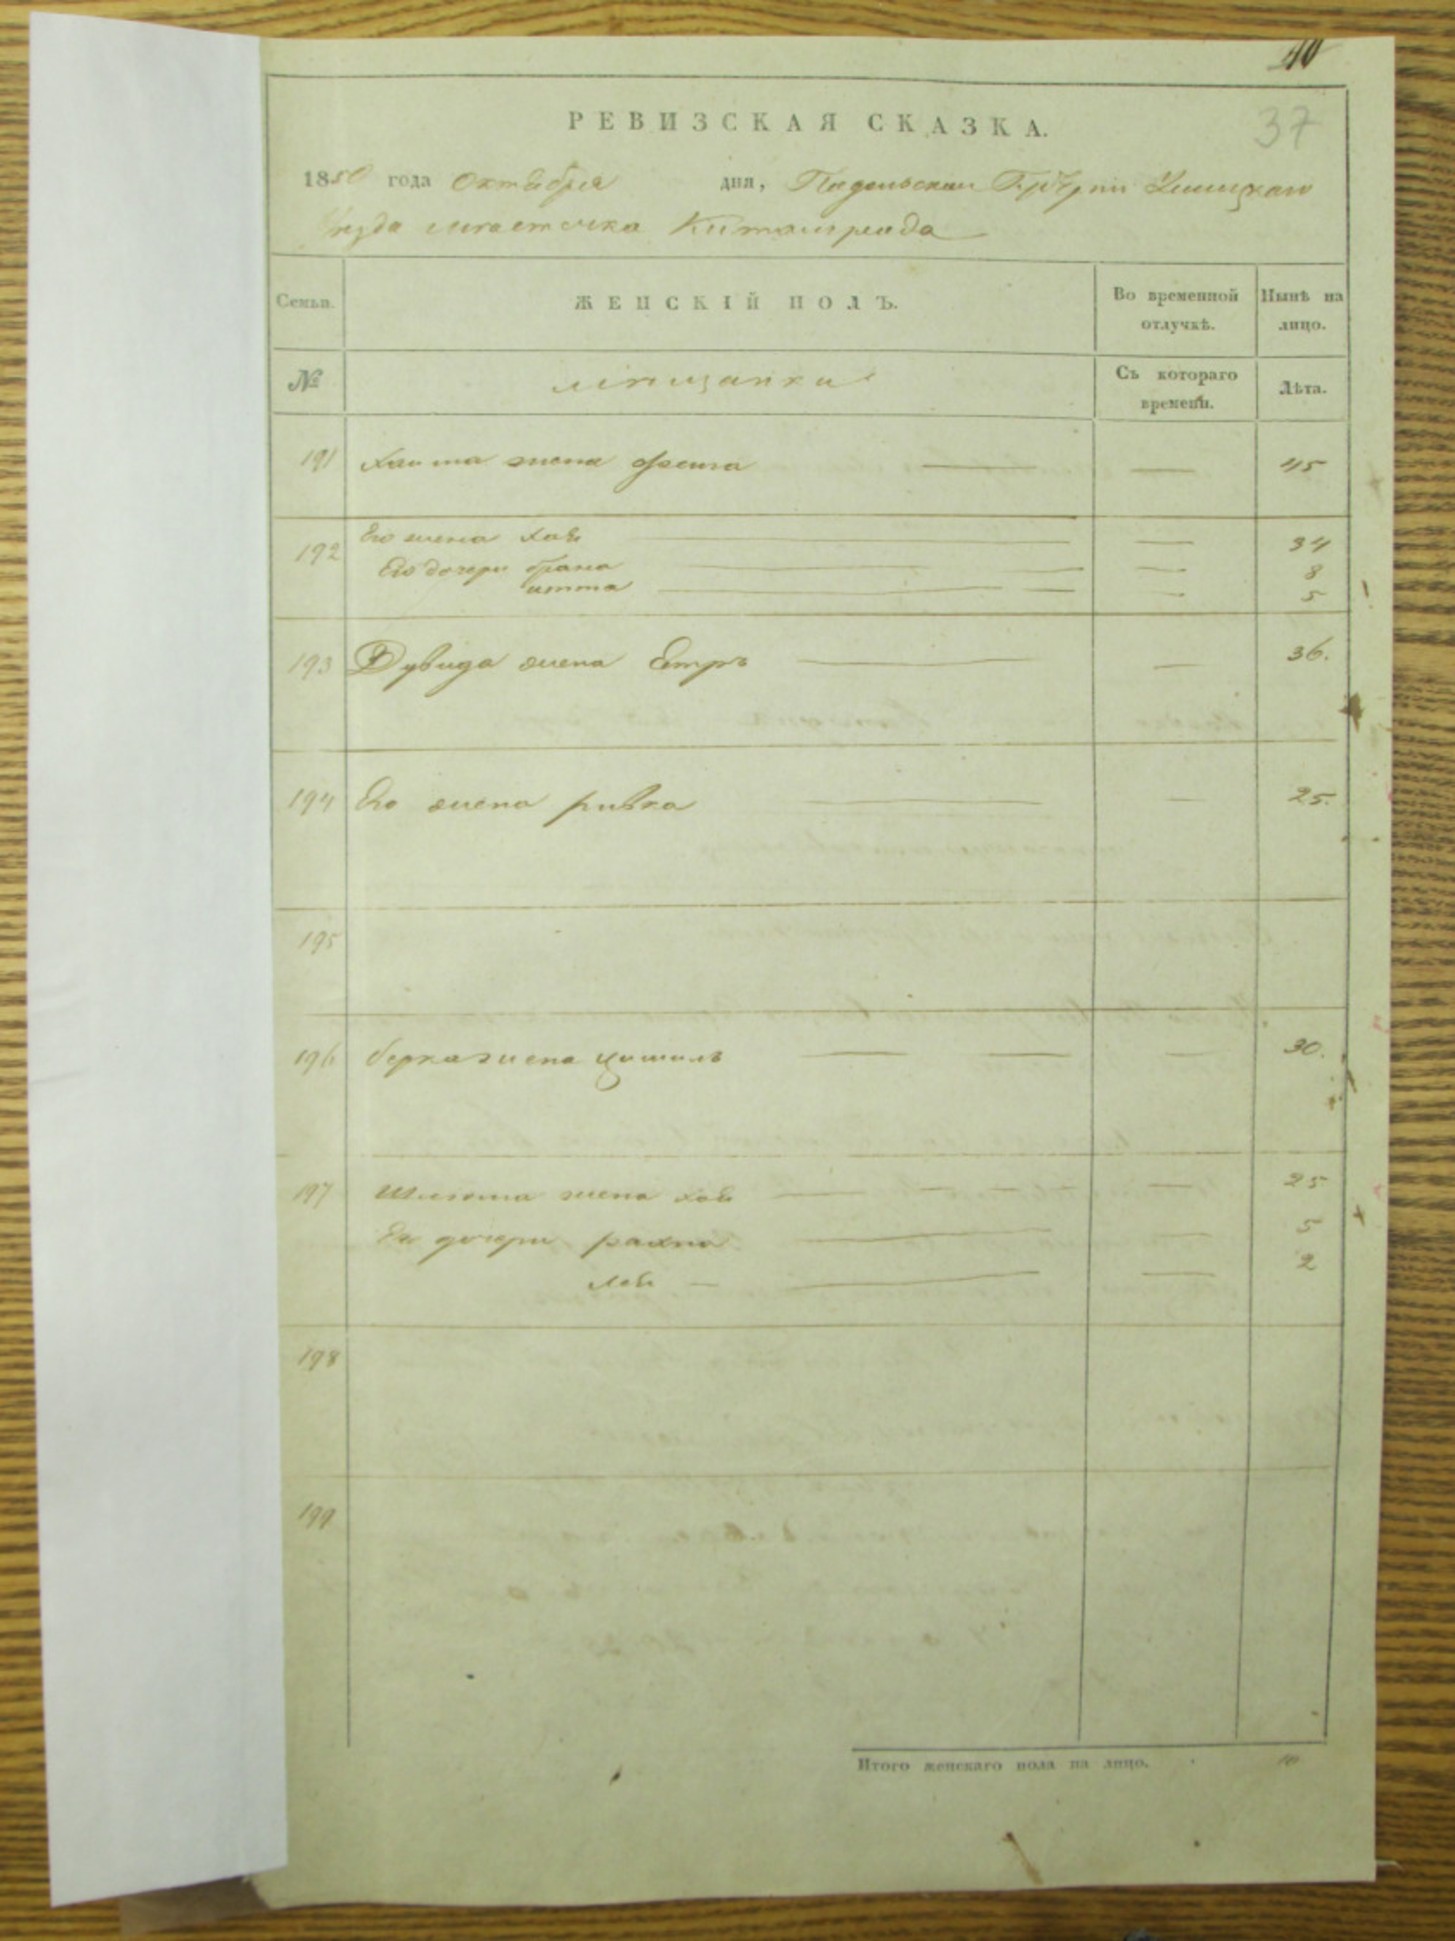 40
37
РЕВИЗСКАЯ СКАЗКА.
1850 года Октября дня, Подольской Губерніи Ушицкаго
Уезда местечка Китайгрода
Семьи. ЖЕНСКІЙ ПОЛЪ. Во временной отлучкѣ. Нынѣ на лицо.
№ мещанки Съ котораго времени. Лѣта.
191 жена Фейга — — 45
192 Его жена Хая — — 34
Его дочери Брана — — 8
Итта — — 5
193 Дувида жена Естръ — — 36.
194 Его жена Ривка — — 25.
195
196 Берка жена — — — 30.
197 Шлиома жена Хая — — — — — 25
Его дочери Рахна — — 5
Лея — — — 2
198
199
Итого женскаго пола на лицо. 10